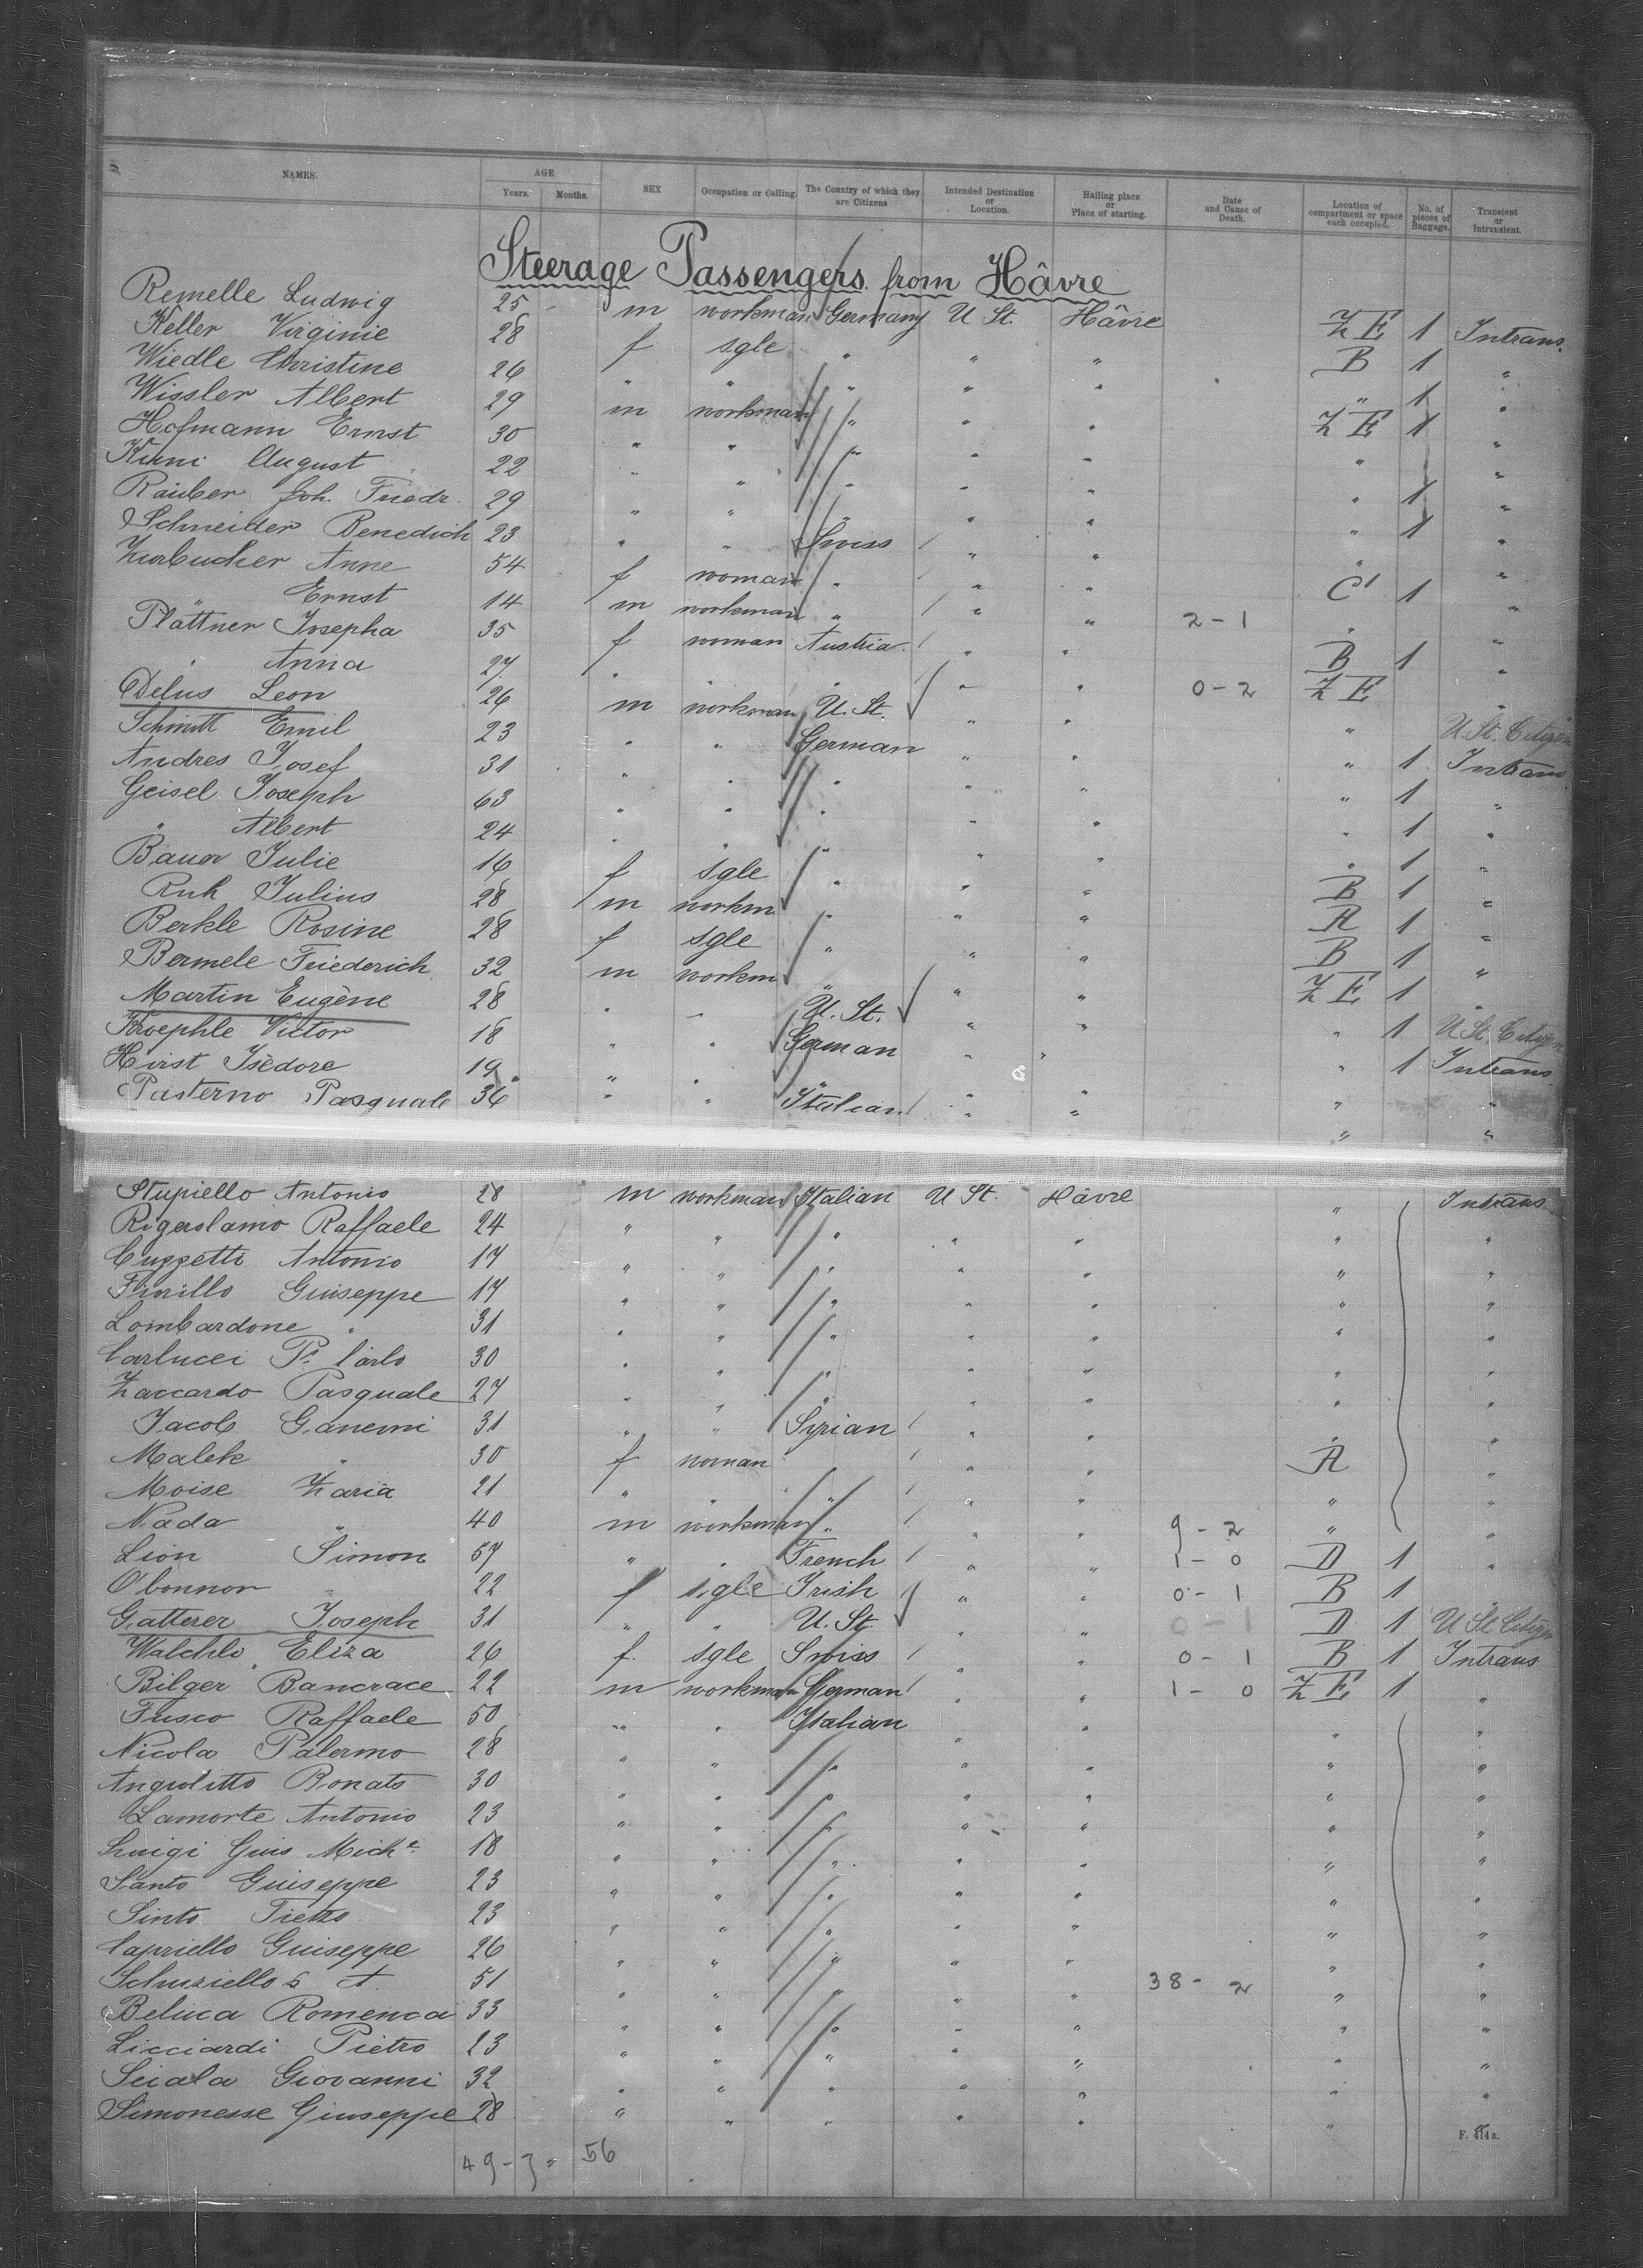 NAMES. AGE Years. Months. SEX Occupation or Calling. The Country of which they are Citizens Intended Destination or Location. Hailing place or Place of starting. Date and Cause of Death. Location of compartment or space each occupied. No. of pieces of Baggage. Transient or Intransient.
Steerage Passengers from Hâvre
Remelle Ludwig 25 m workman Germany U St. Hâvre Z E 1 Intrans.
Keller Virginie 28 f sgle " " " B 1 "
Wiedle Christine 26 " " " " " " 1 "
Wissler Albert 29 m workman " " " Z E 1 "
Hofmann Ernst 30 " " " " " " "
Kurni August 22 " " " " " " 1 "
Räuber Joh. Friedr. 29 " " " " " " 1 "
Schneider Benedich 23 " " Swiss " " " "
Zurbucher Anne 54 f woman " " " C' 1 "
" Ernst 14 m workman " " " 2-1 " "
Plattner Josepha 35 f woman Austria " " B 1 "
" Anna 27 " " " " " 0-2 Z E "
Delus Leon 26 m workman U. St. " " " U. St. Citizen
Schmitt Emil 23 " " German " " " 1 Intrans
Andres Josef 31 " " " " " " 1 "
Geisel Joseph 63 " " " " " " 1 "
" Albert 24 " " " " " " 1 "
Bauer Julie 16 f sgle " " " B 1 "
Ruh Julius 28 m workm " " " A 1 "
Berkle Rosine 28 f sgle " " " B 1 "
Bermele Friederich 32 m workm " " " Z E 1 "
Martin Eugène 28 " " U. St. " " " 1 U St. Citizen
Kroephle Victor 18 " " German " " " 1 Intrans
Hirst Isédore 19 " " " " " " "
Pasterno Pasquale 36 " " Italian " " " "
Stupiello Antonio 28 m workman Italian U St. Hâvre " Intrans
Rigerolamo Raffaele 24 " " " " " " "
Cuggetti Antonio 17 " " " " " " "
Fiorillo Guiseppe 17 " " " " " " "
Lombardone " 31 " " " " " " "
Carlucci Pe Carlo 30 " " " " " " "
Zaccardo Pasquale 27 " " " " " " "
Jacob Ganemi 31 " " Syrian " " " "
Malek " 30 f woman " " A "
Moise Zaria 21 " " " " " " "
Nada " 40 m workman " " " 9-2 " "
Lion Simon 57 " " French " " 1-0 D 1 "
O'Connor " 22 f sigle Irish " " 0-1 B 1 "
Gatterer Joseph 31 " " U. St. " " 0-1 D 1 U St Citizen
Walchli Eliza 26 f. sgle Swiss " " 0-1 B 1 Intrans
Bilger Bancrace 22 m workman German " " 1-0 Z E 1 "
Fusco Raffaele 50 " " Italian " " " "
Nicola Palermo 28 " " " " " " "
Angiolitto Ronato 30 " " " " " " "
Lamorte Antonio 23 " " " " " " "
Luigi Guis Miche 18 " " " " " " "
Santo Guiseppe 23 " " " " " " "
Sinto Pietro 23 " " " " " " "
Capriello Guiseppe 26 " " " " " " "
A 51 " " " " " 38-2 " "
Beluca Romenca 33 " " " " " " "
Licciardi Pietro 23 " " " " " " "
Sciala Giovanni 32 " " " " " " "
Simonesse Giuseppe 28 " " " " " " "
49-7= 56
F. 414a.